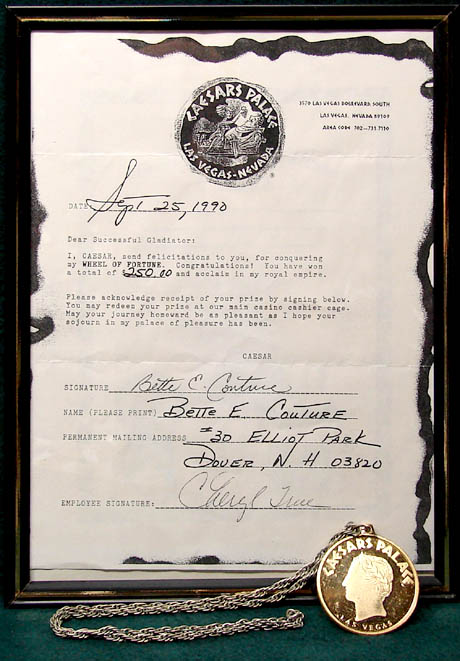 CAESARS PALACE
LAS VEGAS-NEVADA
3570 LAS VEGAS BOULEVARD SOUTH
LAS VEGAS, NEVADA 89109
AREA CODE 702-731-7110
DATE Sept 25, 1990
Dear Successful Gladiator:
I, CAESAR, send felicitations to you, for conquering
my WHEEL OF FORTUNE. Congratulations! You have won
a total of $250.00 and acclaim in my royal empire.
Please acknowledge receipt of your prize by signing below.
You may redeem your prize at our main casino cashier cage.
May your journey homeward be as pleasant as I hope your
sojourn in my palace of pleasure has been.
CAESAR
SIGNATURE Bette E. Couture
NAME (PLEASE PRINT) BETTE E. COUTURE
PERMANENT MAILING ADDRESS #30 ELLIOT PARK
DOVER, N. H 03820
EMPLOYEE SIGNATURE: Cheryl True
CAESARS PALACE
LAS VEGAS